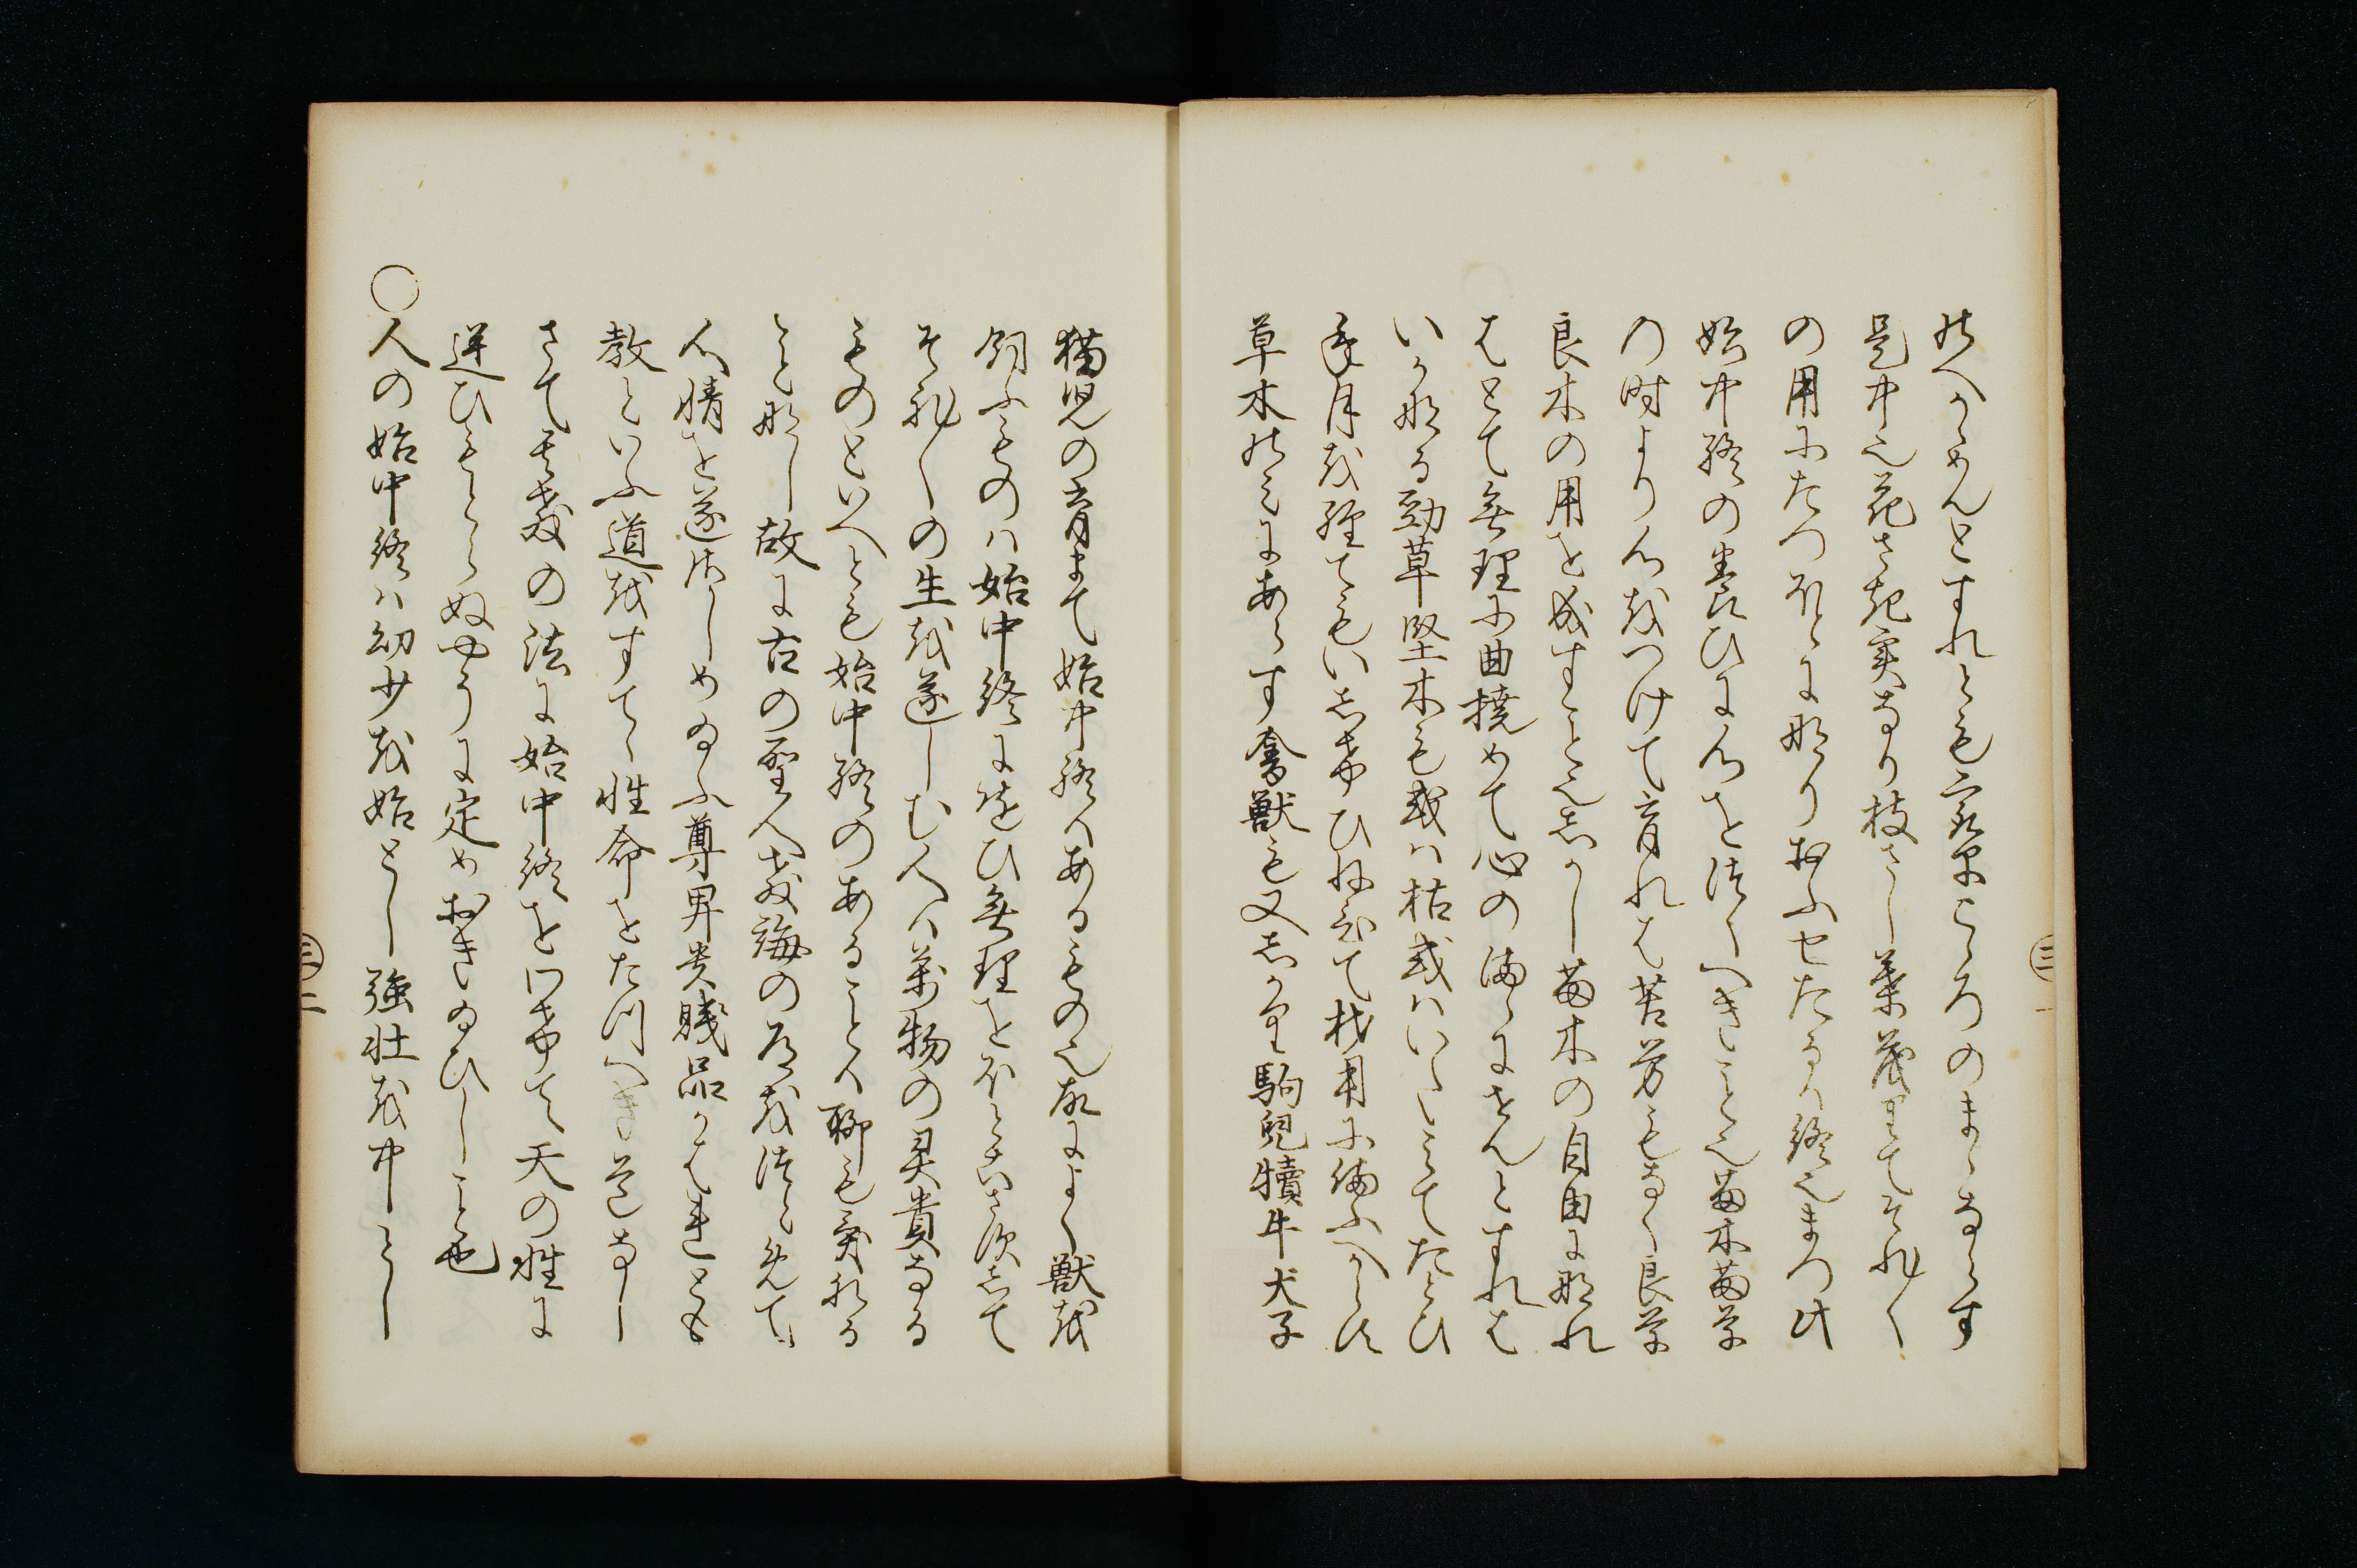 のへからめんとすれとも二六時中こゝろのまゝならす
是中之花さき実なり枝さし葉茂りてそれ〳〵
の用にたつほとに那りおふせたるハ終之まつ此
始中終の養ひに心を徒くへきことそ苗木苗草
の時より心越つけて育れは苦労もなく良草
良木の用を成すことそしかし苗木の自由に那れ
はとて無理に曲撓めて心の満ゝにせんとすれは
いか那る勁草堅木も或ハ枯或ハいたミてたとひ
年月越経てもいしけひねて材用に備ふへからす
草木のミにあらす禽獣も又しかり駒児犢牛犬子
猫児の育まて始中終ハあるもの之故によく獣越
飼ふものハ始中終に従ひ無理をほとこさすして
それ〳〵の生越遂しむ人ハ万物の霊貴なる
ものといへとも始中終のあることハ聊も異なる
こと那し故に古の聖人教誨の道越徒と免て
人情を遂けしめ給ふ尊卑貴賤品かはれとも
教といふ道越すてゝ性命をたつへき道なし
さて其教の法に始中終をわけて天の性に
逆ひもとらぬやうに定めおき給ひしこと也
〇人の始中終ハ幼少越始とし強壮越中とし
三ノ一
三ノ二